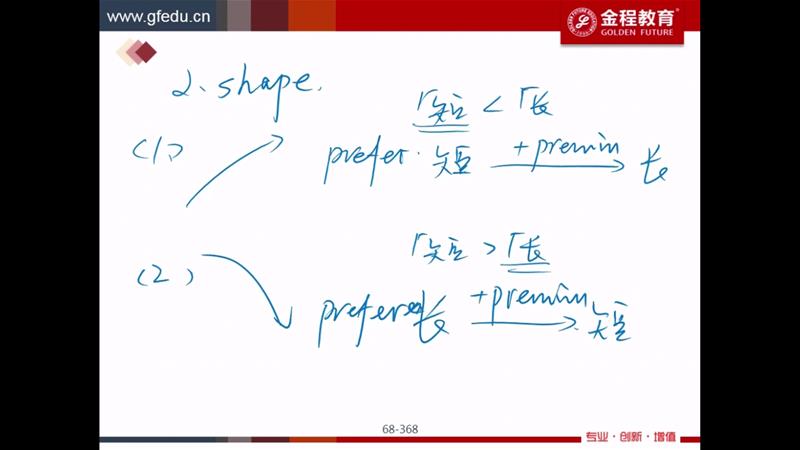 www.gfedu.cn
金程教育
GOLDEN FUTURE
2、shape.
(1)
r短 < r长
prefer. 短 +premin 长
(2)
r短 > r长
prefer 长 +premin 短
68-368
专业·创新·增值